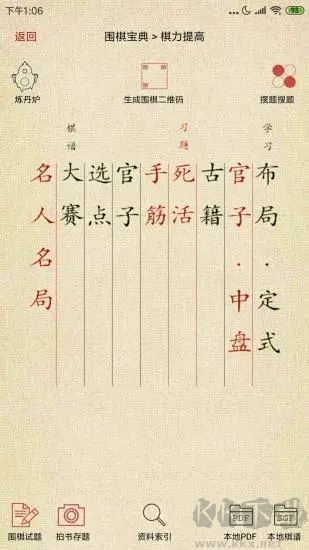 下午1:06
93
返回
围棋宝典 > 棋力提高
炼丹炉
生成围棋二维码
摆题搜题
学习
布局·定式
官子·中盘
古籍
习题
死活
手筋
官子
选点
棋谱
大赛
名人名局
围棋试题
拍书存题
资料索引
PDF
本地PDF
SGF
本地棋谱
KK下载
www.kkx.net